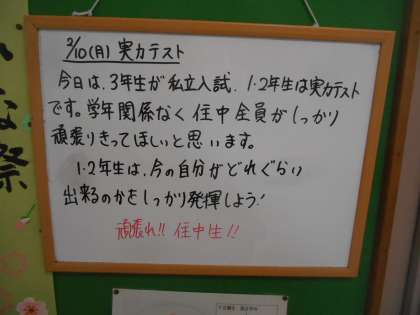 2/10(月) 実力テスト
今日は、3年生が私立入試、1・2年生は実力テスト
です。学年関係なく住中全員がしっかり
頑張りきってほしいと思います。
1・2年生は、今の自分がどれぐらい
出来るのかをしっかり発揮しよう!
頑張れ!! 住中生!!
祭